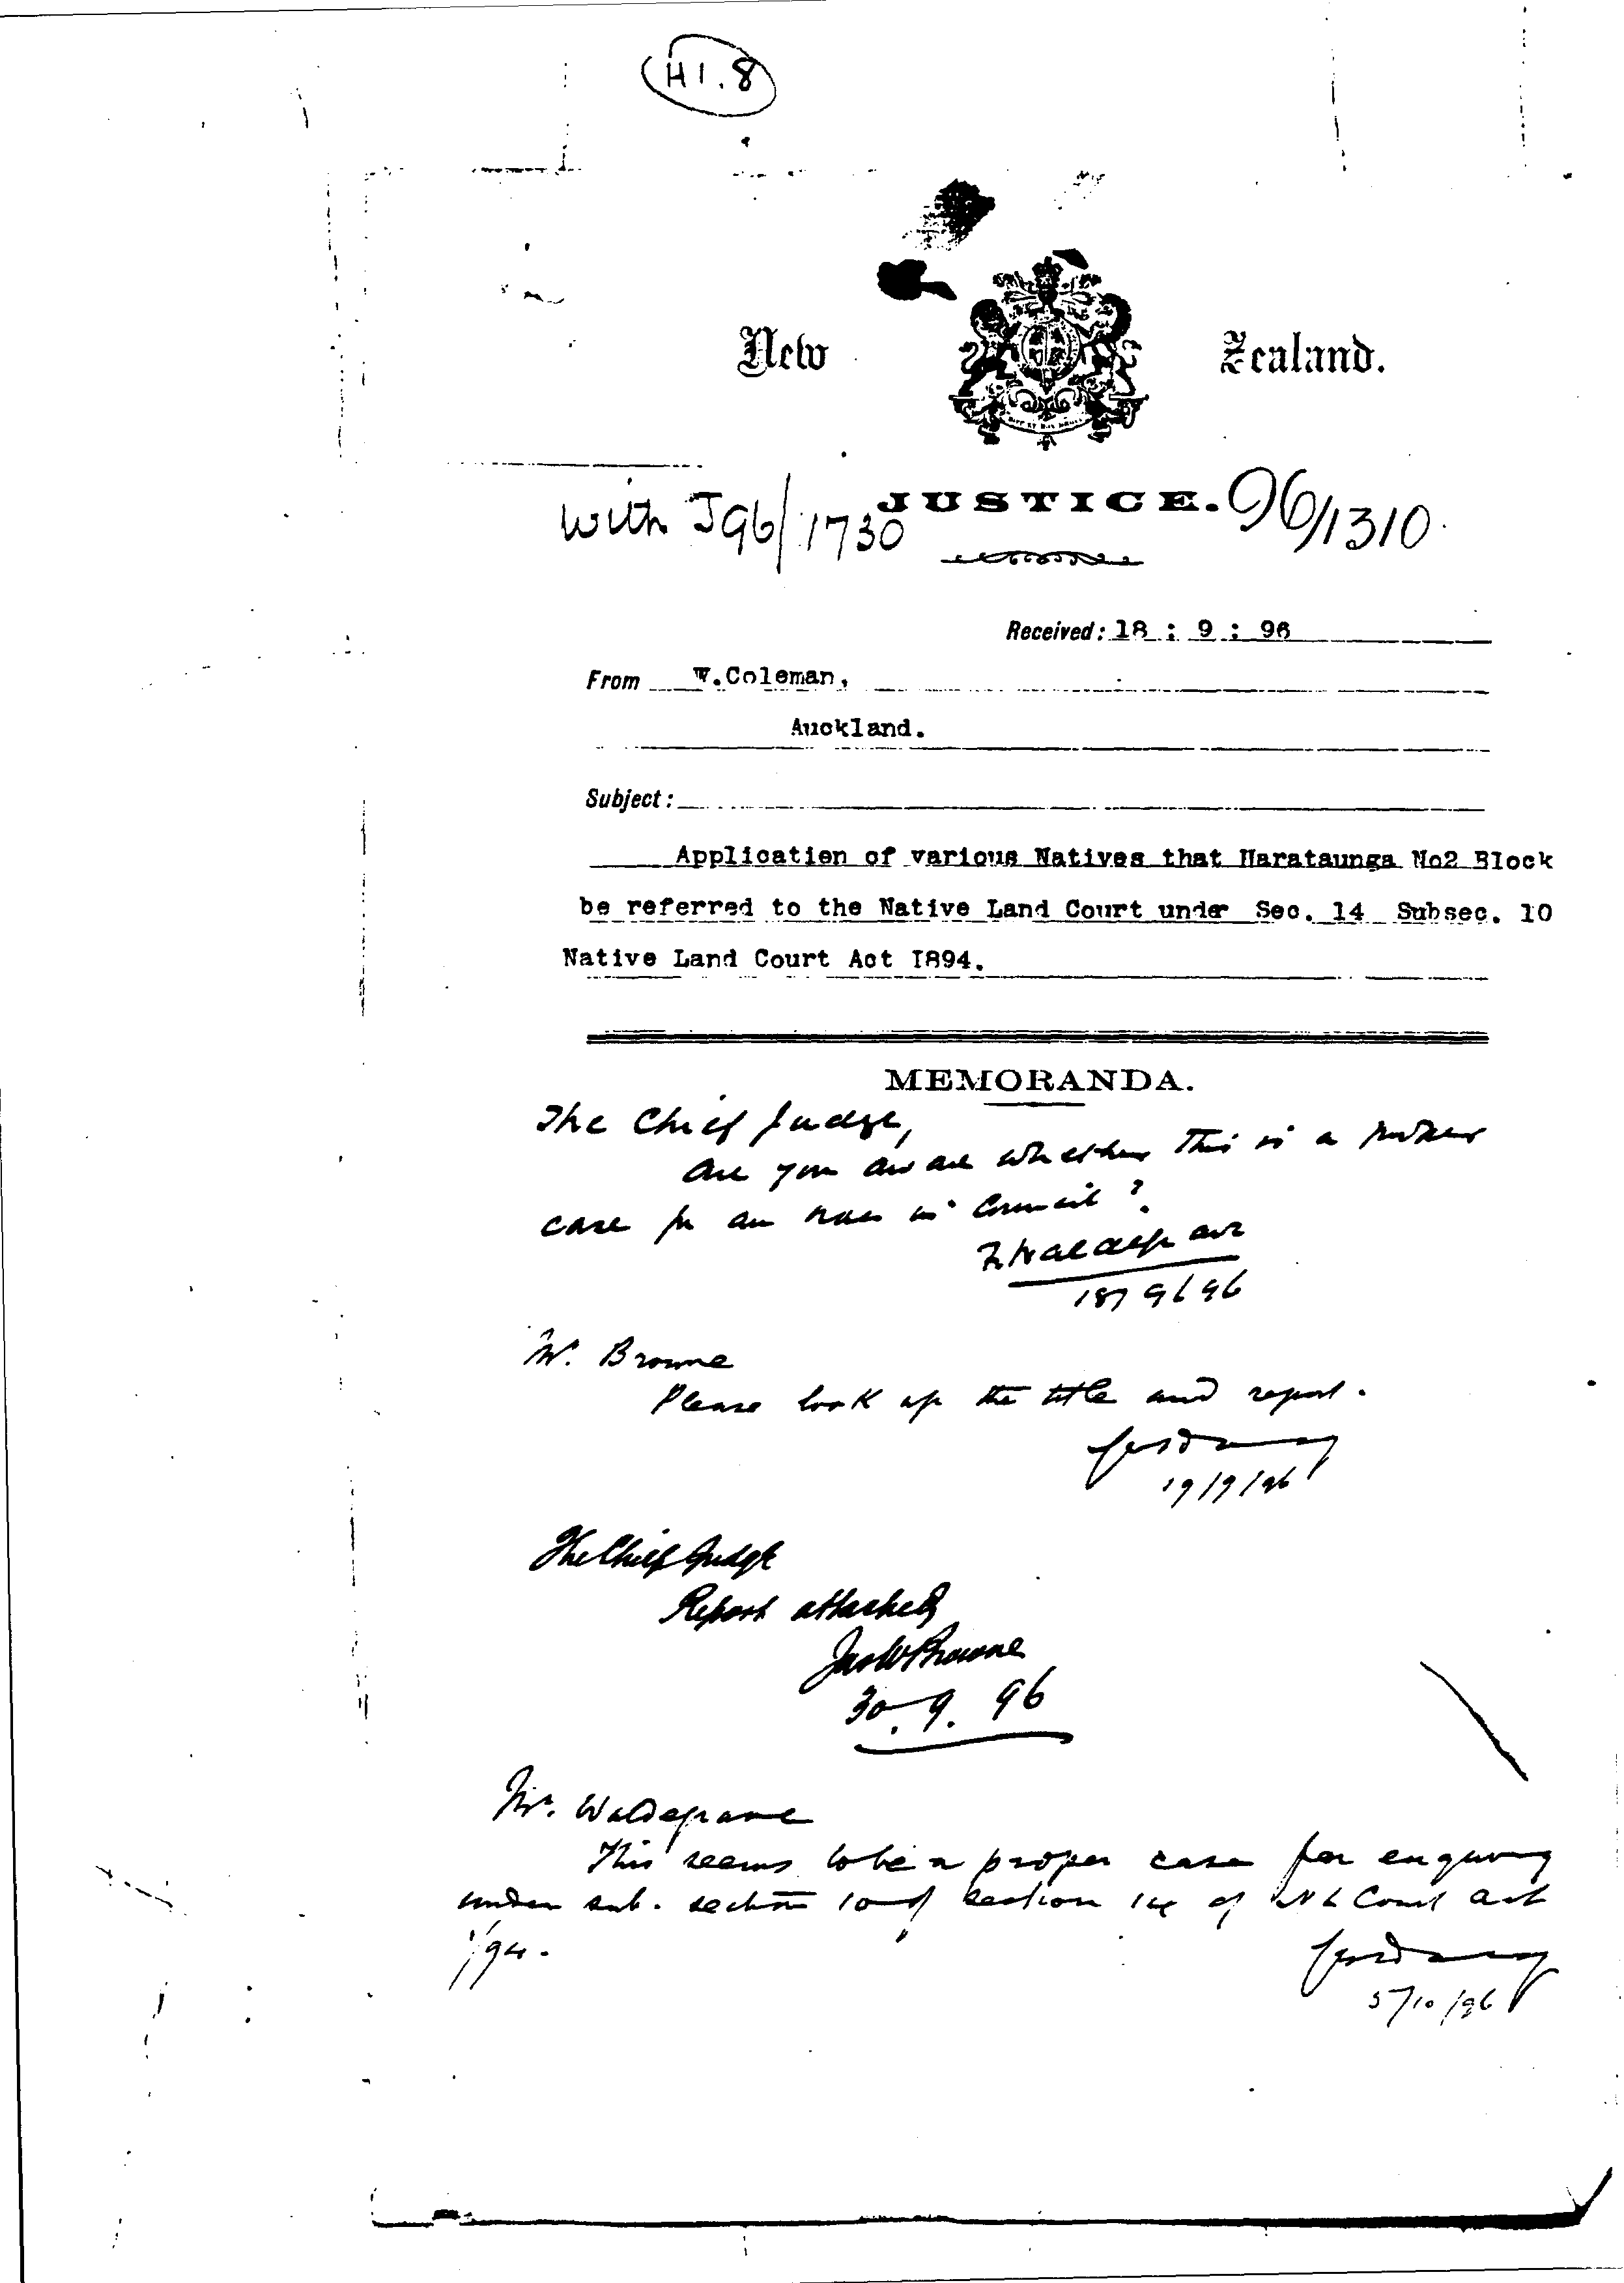 H1.8
New Zealand.
With J96/1730 JUSTICE. 96/1310
Received: 18 : 9 : 96
From W.Coleman,
Auckland.
Subject:
Application of various Natives that Harataunga No2 Block
be referred to the Native Land Court under Sec. 14 Subsec. 10
Native Land Court Act 1894.
MEMORANDA.
The Chief Judge,
Are you aware whether this is a proper
case for an order in Council?
F Waldegrave
18/9/96
Mr. Browne
Please look up the title and report.
19/9/96
The Chief Judge
Report attached
Jas W Browne
30.9.96
Mr. Waldegrave
This seems to be a proper case for enquiry
under sub. section 10 of section 14 of N L Court Act
/94.
5/10/96